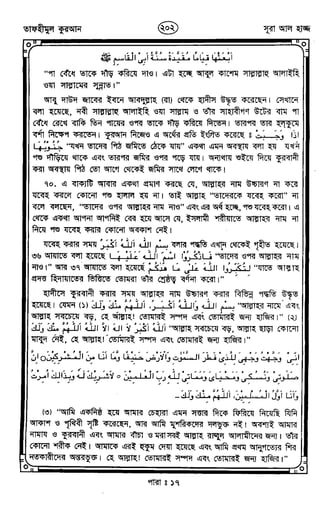 তাফহীমুল কুরআন ২০২ সূরা আল হাজ্জ
ابْعَثْهَا قِيَامًا مُقَيَّدَةً سُنَّةَ أَبِي الْقَاسِمِ ﷺ
"পা বেঁধে তাকে দাঁড় করিয়ে দাও। এটা হচ্ছে আবুল কাসেম সাল্লাল্লাহু আলাইহি
ওয়া সাল্লামের সুন্নাত।"
আবু দাউদ জাবের ইবনে আবদুল্লাহ (রা) থেকে হাদীস উদ্ধৃত করেছেন। সেখানে
বলা হয়েছে, নবী সাল্লাল্লাহু আলাইহি ওয়া সাল্লাম ও তাঁর সাহাবীগণ উটের বাম পা
বেঁধে রেখে বাকি তিন পায়ের ওপর তাকে দাঁড় করিয়ে দিতেন। তারপর তার হলকুমে
বর্শা নিক্ষেপ করতেন। কুরআন নিজেও এ অর্থের প্রতি ইংগিত করেছে : اذا وَجَبَتْ
جُنُوبُهَا "যখন তাদের পিঠ জমিতে ঠেকে যায়" একথা এমন অবস্থায় বলা হয় যখন
পশু দাঁড়িয়ে থাকে এবং তারপর জমির ওপর পড়ে যায়। অন্যথায় শুইয়ে দিয়ে কুরবানী
করা অবস্থায় পিঠ তো আগে থেকেই জমির সাথে লেগে থাকে।
৭০. এ বাক্যটি আবার একথা প্রমাণ করছে যে, আল্লাহর নাম উচ্চারণ না করে
যবেহ করলে কোনো পশু হালাল হয় না। তাই আল্লাহ "তাদেরকে যবেহ করো" না
বলে বলছেন, "তাদের ওপর আল্লাহর নাম নাও" এবং এর অর্থ হচ্ছে, পশু যবেহ করো। এ
থেকে একথা আপনা আপনিই বের হয়ে আসে যে, ইসলামী শরীয়াতে আল্লাহর নাম না
নিয়ে পশু যবেহ করার কোনো অবকাশ নেই।
যবেহ করার সময় بِسْمِ اللهِ اَللهُ اَكْبَرُ বলার পদ্ধতি এখান থেকেই গৃহীত হয়েছে।
৩৬ আয়াতে বলা হয়েছে فَاذْكُرُوا اسْمَ اللهِ عَلَيْهَا "তাদের ওপর আল্লাহর নাম
নাও।" আর ৩৭ আয়াতে বলা হয়েছে لِتُكَبِّرُوا اللهَ عَلَى مَا هَدَاكُمْ "যাতে আল্লাহ
প্রদত্ত হিদায়াতের ভিত্তিতে তোমরা তাঁর শ্রেষ্ঠত্ব বর্ণনা করো।"
হাদীসে কুরবানী করার সময় আল্লাহর নাম উচ্চারণ করার বিভিন্ন পদ্ধতি উদ্ধৃত
হয়েছে। যেমন (১) بِسْمِ اللهِ وَاللهُ اَكْبَرُ اَللّٰهُمَّ مِنْكَ وَلَكَ "আল্লাহর নামে এবং
আল্লাহ সবচেয়ে বড়, হে আল্লাহ! তোমারই সম্পদ এবং তোমারই জন্য হাজির।" (২)
اَللهُ اَكْبَرُ لَا اِلٰهَ اِلَّا اللهُ اَللّٰهُمَّ مِنْكَ وَلَكَ "আল্লাহ সবচেয়ে বড়, আল্লাহ ছাড়া কোনো
মাবুদ নেই, হে আল্লাহ! তোমারই সম্পদ এবং তোমারই জন্য হাজির।"
اِنِّي وَجَّهْتُ وَجْهِيَ لِلَّذِي فَطَرَ السَّمٰوٰتِ وَالْاَرْضَ حَنِيْفًا وَّمَا اَنَا مِنَ الْمُشْرِكِيْنَ ۝ اِنَّ
صَلٰوتِيْ وَنُسُكِيْ وَمَحْيَايَ وَمَمَاتِيْ لِلّٰهِ رَبِّ الْعٰلَمِيْنَ ۝ لَا شَرِيْكَ لَهٗ وَبِذٰلِكَ اُمِرْتُ
وَاَنَا اَوَّلُ الْمُسْلِمِيْنَ، اَللّٰهُمَّ مِنْكَ وَلَكَ -
(৩) "আমি একনিষ্ঠ হয়ে আমার চেহারা এমন সত্তার দিকে ফিরিয়ে নিয়েছি যিনি
আকাশ ও পৃথিবী সৃষ্টি করেছেন, আর আমি মুশরিকদের দলভুক্ত নই। অবশ্যই আমার
নামায ও কুরবানী এবং আমার বাঁচা ও মরা সবই আল্লাহ রাব্বুল আলামীনের জন্য। তাঁর
কোনো শরীক নেই। আমাকে এরই হুকুম দেয়া হয়েছে এবং আমি প্রথম আনুগত্যের শির
নতকারীদের অন্তরভুক্ত। হে আল্লাহ! তোমারই সম্পদ এবং তোমারই জন্য হাজির।"
পারা : ১৭